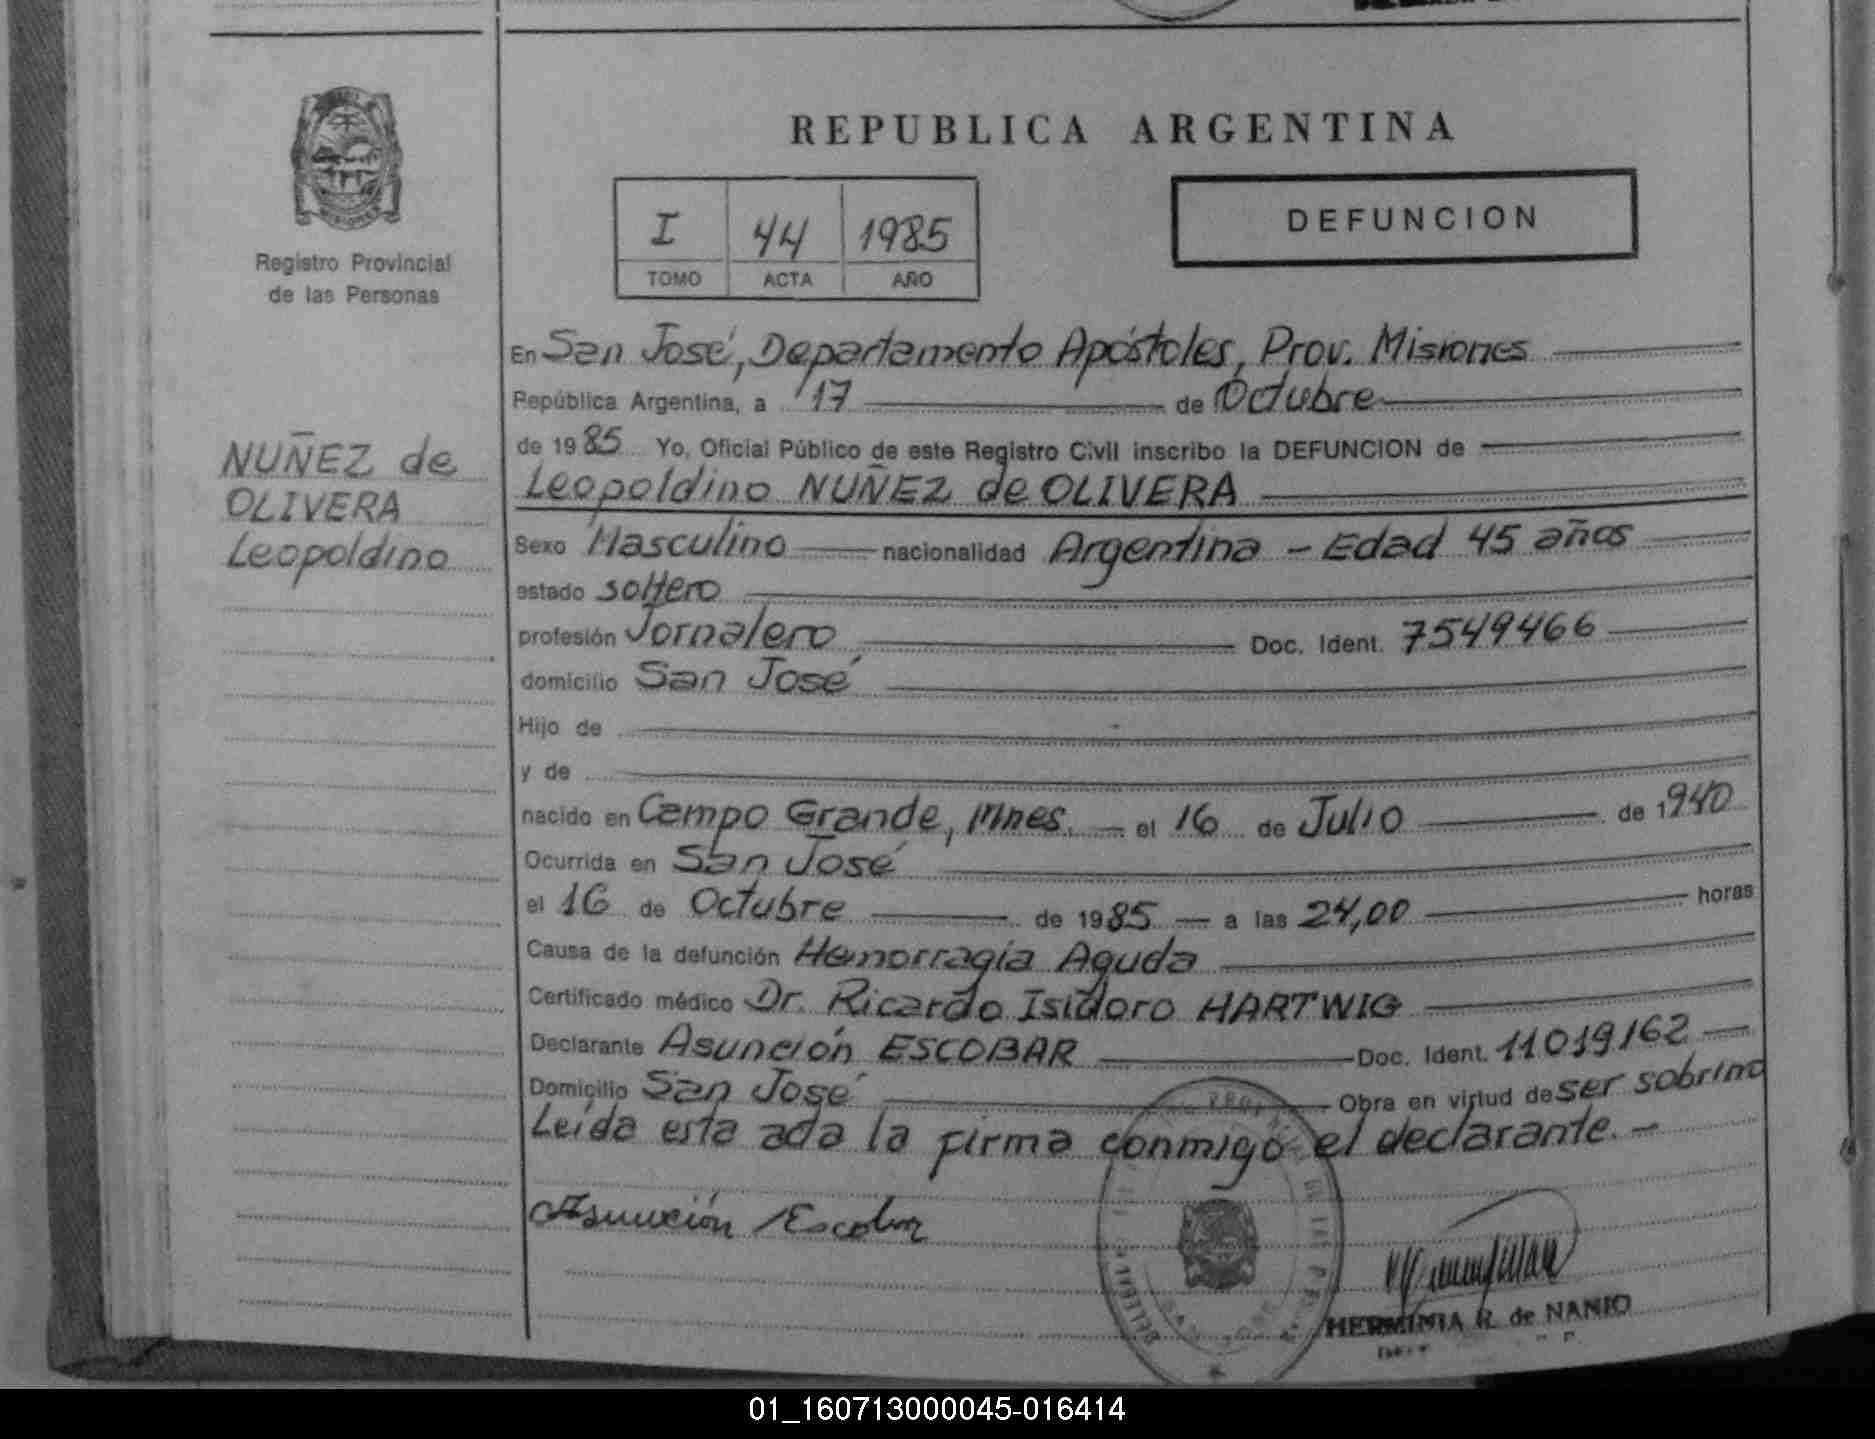 REPUBLICA ARGENTINA
MISIONES
Registro Provincial
de las Personas
I 44 1985
TOMO ACTA AÑO
DEFUNCION
NUÑEZ de
OLIVERA
Leopoldino
En San José, Departamento Apóstoles, Prov. Misiones
República Argentina, a 17 de Octubre
de 1985 Yo, Oficial Público de este Registro Civil inscribo la DEFUNCION de
Leopoldino NUÑEZ de OLIVERA
Sexo Masculino nacionalidad Argentina - Edad 45 años
estado soltero
profesión Jornalero Doc. Ident. 7549466
domicilio San José
Hijo de
y de
nacido en Campo Grande, Mnes. el 16 de Julio de 1940
Ocurrida en San José
el 16 de Octubre de 1985 a las 24,00 horas
Causa de la defunción Hemorragia Aguda
Certificado médico Dr. Ricardo Isidoro HARTWIG
Declarante Asunción ESCOBAR Doc. Ident. 11019162
Domicilio San José Obra en virtud de ser sobrino
Leída esta acta la firma conmigo el declarante. -
Asunción Escobar
HERMINIA R. de NANIO
01_160713000045-016414